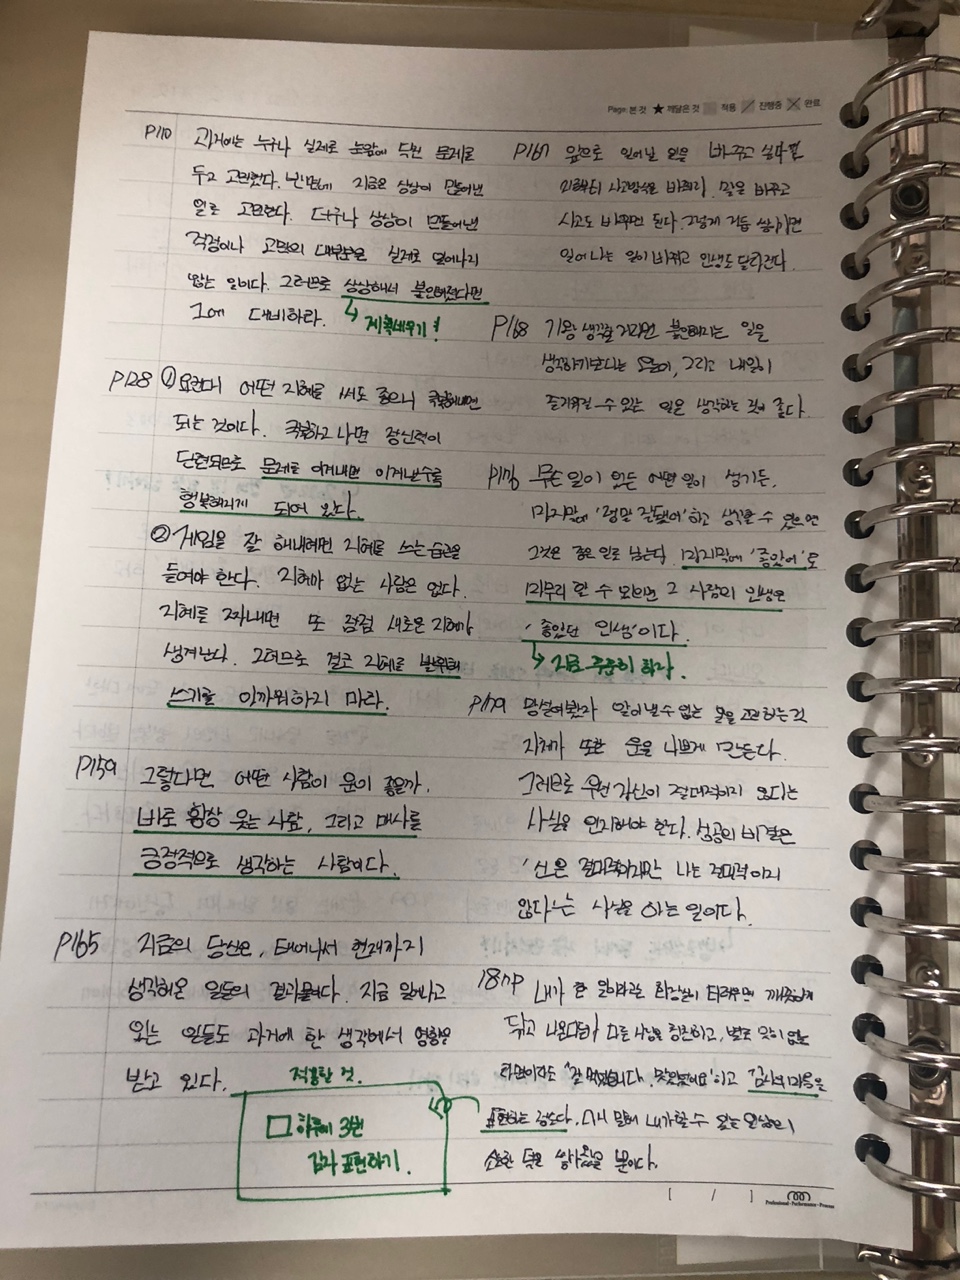 Page: 본 것 ★ 깨달은 것 적용 진행중 완료
P110 과거에는 누구나 실제로 눈앞에 닥친 문제로
두고 고민했다. 반면에 지금은 상상이 만들어낸
일로 고민한다. 더구나 상상이 만들어낸
걱정이나 고민의 대부분은 실제로 일어나지
않는 일이다. 그러므로 상상해서 불안해졌다면
그에 대비하라.
↳ 계획세우기!
P128 ① 요컨대 어떤 지혜를 써도 좋으니 극복해내면
되는 것이다. 극복하고 나면 정신력이
단련되므로 문제를 이겨내면 이겨낼수록
행복해지게 되어 있다.
② 게임을 잘 해내려면 지혜를 쓰는 습관을
들여야 한다. 지혜가 없는 사람은 없다.
지혜를 짜내면 또 점점 새로운 지혜가
생겨난다. 그러므로 결코 지혜를 발휘해
쓰기를 아까워하지 마라.
P159 그렇다면 어떤 사람이 운이 좋을까.
바로 항상 웃는 사람, 그리고 매사를
긍정적으로 생각하는 사람이다.
P165 지금의 당신은, 태어나서 현재까지
생각해온 일들의 결과물이다. 지금 일어나고
있는 일들도 과거에 한 생각에서 영향을
받고 있다.
적용할 것.
□ 하루에 3번
감사 표현하기.
P167 앞으로 일어날 일을 바꾸고 싶다면
지금부터 사고방식을 바꿔라. 말을 바꾸고
사고도 바꾸면 된다. 그렇게 거듭 쌓이면
일어나는 일이 바뀌고 인생도 달라진다.
P168 기왕 생각할 거라면 불안해지는 일을
생각하기보다는 오늘이, 그리고 내일이
즐거워질 수 있는 일을 생각하는 것이 좋다.
P176 무슨 일이 있든 어떤 일이 생기든.
마지막에 '정말 잘됐어'하고 생각할 수 있으면
그것은 좋은 일로 남는다. 마지막에 '좋았어'로
마무리 할 수 있으면 그 사람의 인생은
'좋았던 인생'이다.
↳ 지금 충분히 하라
P179 망설여봤자 알아낼 수 없는 것을 고민하는 것
자체가 또한 운을 나쁘게 만든다.
그러므로 우선 자신이 절대적이지 않다는
사실을 인지해야 한다. 성공의 비결은
'신은 절대적이지만 나는 절대적이지
않다'는 사실을 아는 일이다.
내가 한 일이라곤 화장실이 더러우면 깨끗하게
닦고 나온다던가 다른 사람을 칭찬하고, 별로 맛이 없는
라면이라도 "잘 먹었습니다. 맛있었어요"하고 감사의 마음을
표현하는 정도다.
[ / ]
Professional·Performance·Process